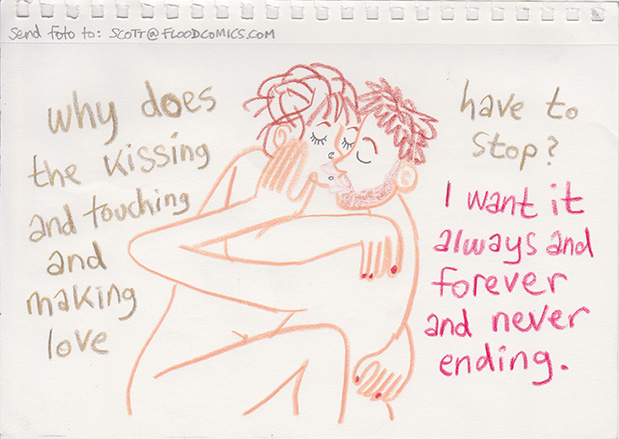 Send foto to: SCOTT@FLOODCOMICS.COM
why does
the kissing
and touching
and
making
love
have to
stop?
I want it
always and
forever
and never
ending.